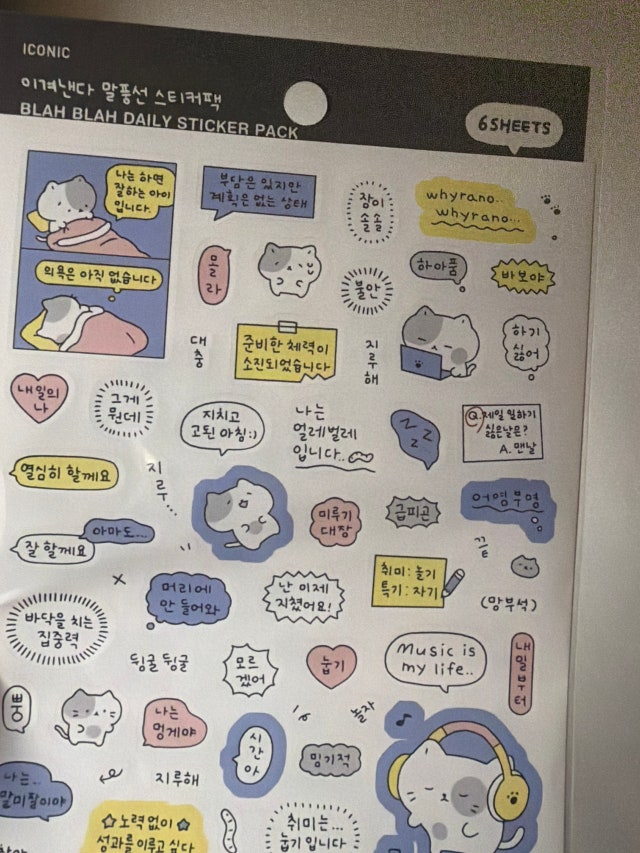 ICONIC
이겨낸다 말풍선 스티커팩
BLAH BLAH DAILY STICKER PACK
6 SHEETS
나는 하면
잘하는 아이
입니다.
의욕은 아직 없습니다
부담은 있지만
계획은 없는 상태
잠이
솔솔
whyrano..
whyrano...
몰
라
불안
하아품
바보야
대
충
준비한 체력이
소진되었습니다
지
루
해
하기
싫어
내일의
나
그게
뭔데
지치고
고된 아침:)
나는
얼레벌레
입니다..
z z z
Q. 제일 일하기
싫은날은?
A. 맨날
열심히 할게요
지
루
...
미루기
대장
급피곤
어영부영
아마도...
잘 할게요
끝
머리에
안 들어와
난 이제
지쳤어요!
취미 : 놀기
특기 : 자기
(망부석)
바닥을 치는
집중력
뒹굴 뒹굴
모르
겠어
눕기
Music is
my life..
내
일
부
터
뿡
나는
멍게야
시
간
아
밍기적
놀자
나는...
말미잘이야
지루해
노력없이
성과를 이루고 싶다
취미는...
눕기 입니다